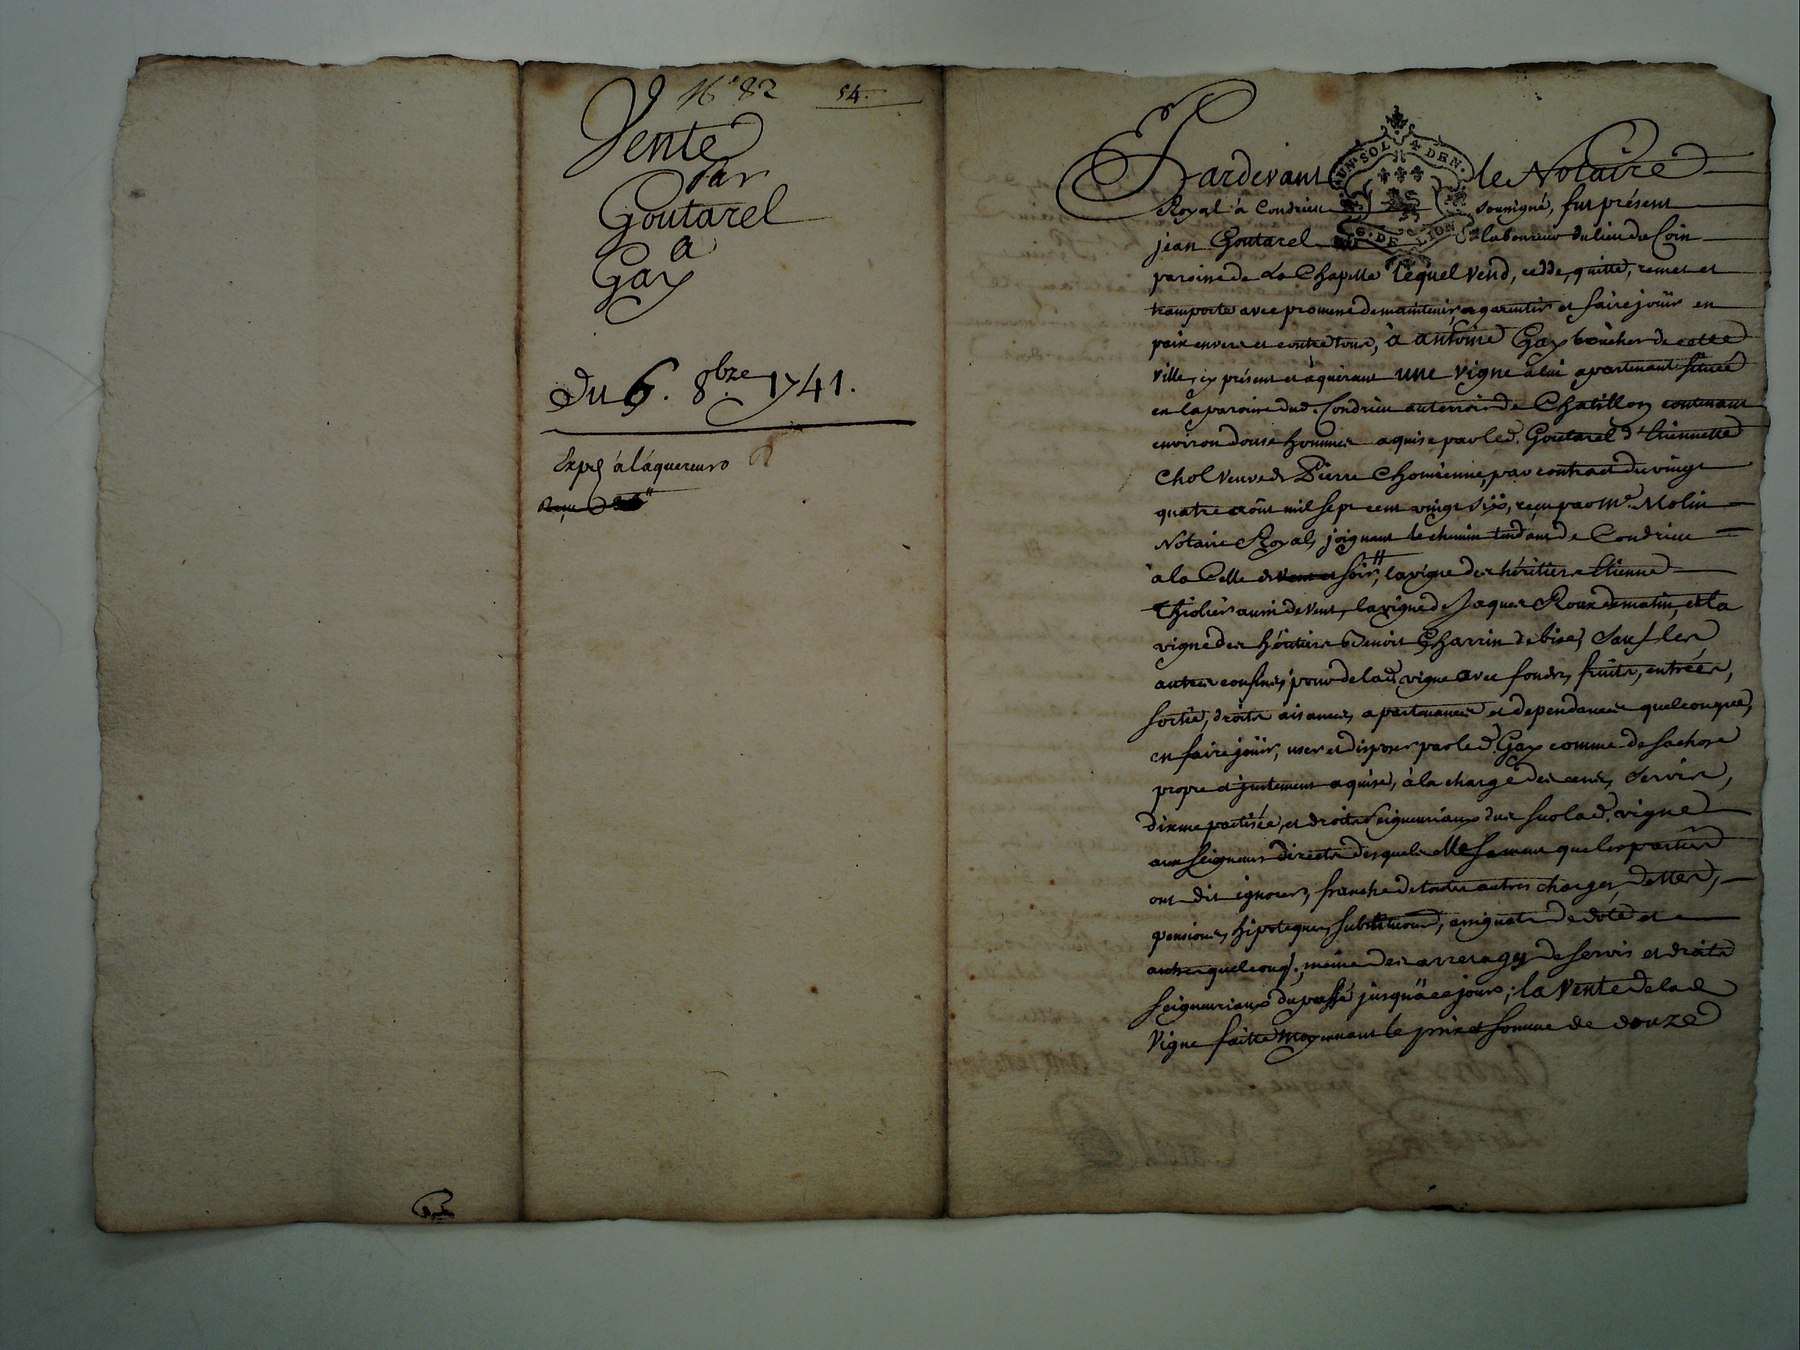 16 82 54.
Vente
par
Goutarel
a
Gay
du 6. 8bre. 1741.
Expé à l'aquereur
UN. SOL 4 DEN.
G. DE LION
Pardevant le Notaire
Royal à Condrieu soussigné, fut présent
jean Goutarel laboureur du lieu de Coin
paroisse de La Chapelle lequel vend, cedde, quitte, remet et
transporte avec promesse de maintenir, garentir et faire joüir en
paix envers et contre tous, à antoine Gay boucher de cette
ville, icy présent et aquérant une vigne à lui apartenant située
en la paroisse dud. Condrieu au terroir de Chatillon contenant
environ douse hommées aquise par led. Goutarel d'Etiennette
Chol veuve de Pierre Chomienne, par contract du vingt
quatre aoüt mil sept cent vingt six, reçu par me. Molin
Notaire Royal, joignant le chemin tendant de Condrieu
à la Celle de soir, la vigne des héritiers Etienne
Thiolier aussi de vent, la vigne de Jaques Roux de matin, et la
vigne des héritiers Benoit Charrin de bise, sauf les
autres confins, pour de lad. vigne avec fonds, fruits, entrées,
sortie, droits aisances, apartenances et dependances quelconques,
en faire joüir, user et disposer par led. Gay comme de sa chose
propre et justement aquise, à la charge des cens, servis,
dixme et droits seigneuriaux dus sur lad. vigne
aux seigneurs directs desquels elle se meut que les parties
ont dit ignorer, franche de toutes autres charges, dettes,
pensions, hipoteques, substitutions, assignats de dote et
autres quelconq., même des arrerages de servis et droits
seigneuriaux du passé jusqu'à ce jour; la vente de lad.
vigne faitte moyennant le prix et somme de douze